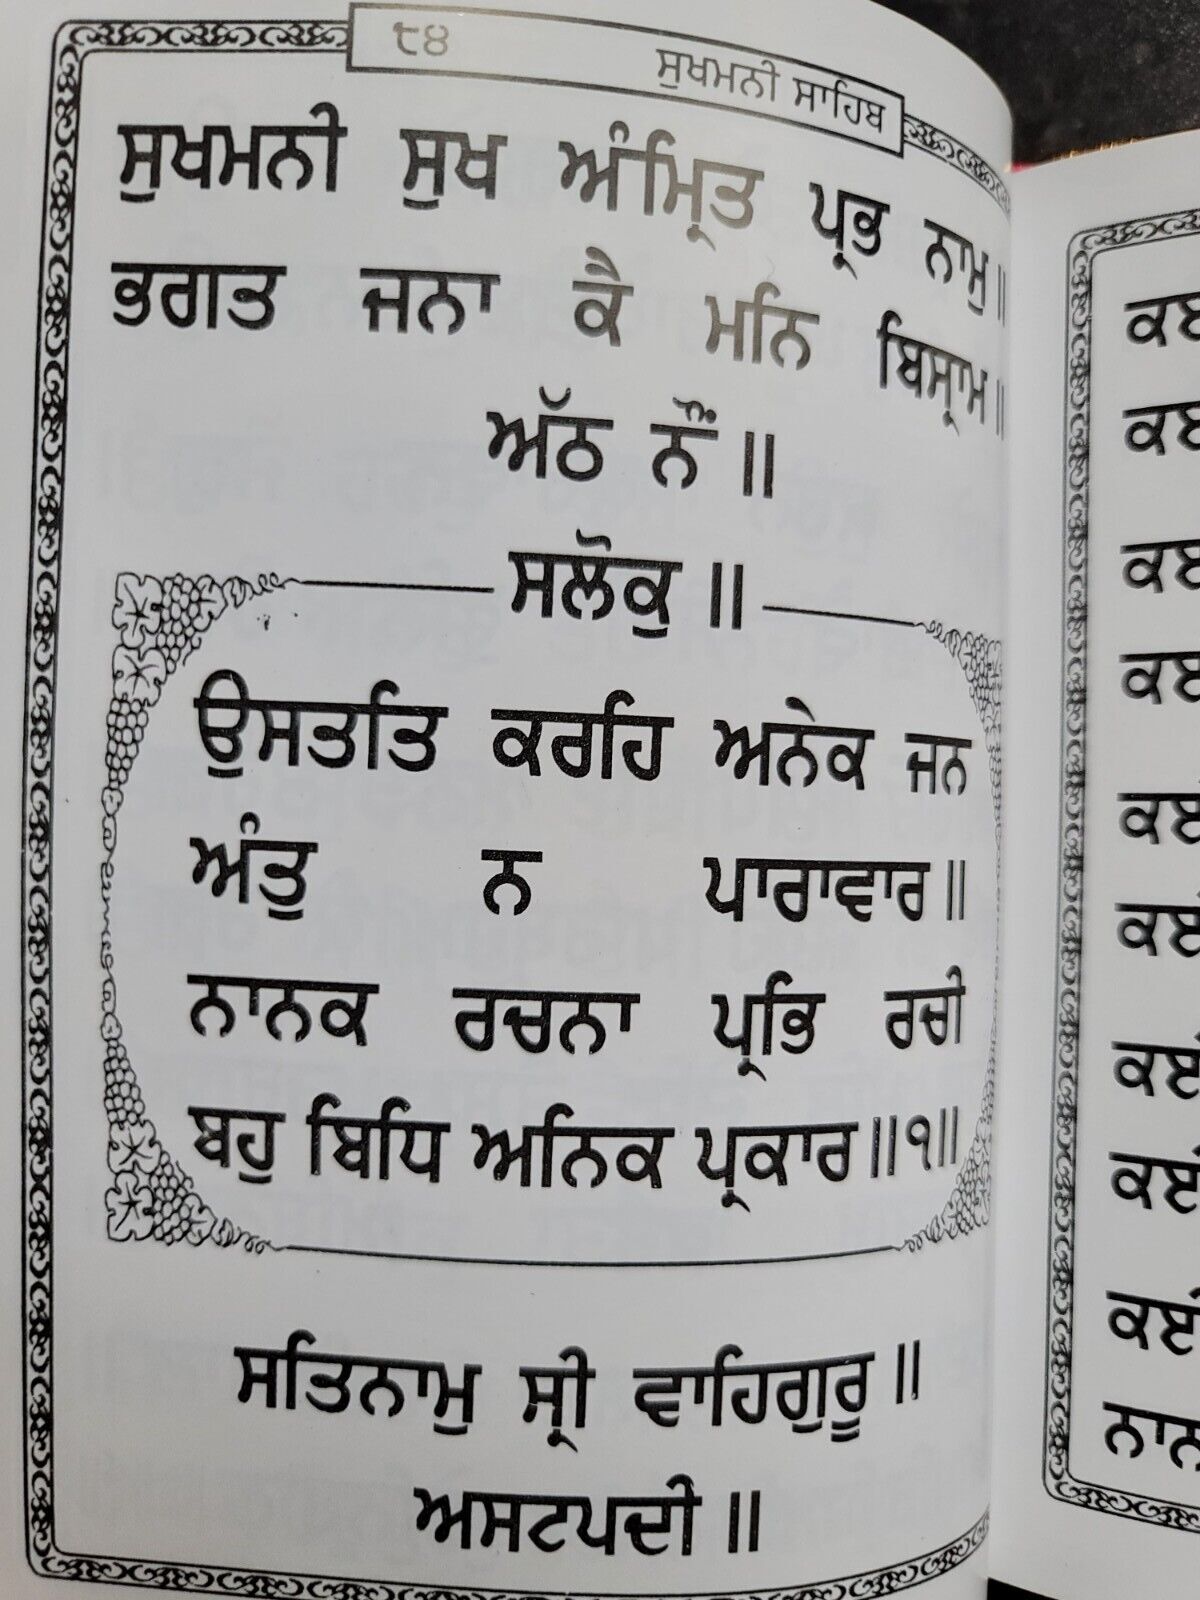 ੮੪ ਸੁਖਮਨੀ ਸਾਹਿਬ
ਸੁਖਮਨੀ ਸੁਖ ਅੰਮ੍ਰਿਤ ਪ੍ਰਭ ਨਾਮੁ॥
ਭਗਤ ਜਨਾ ਕੈ ਮਨਿ ਬਿਸ੍ਰਾਮ॥
ਅੱਠ ਨੌਂ॥
ਸਲੋਕੁ॥
ਉਸਤਤਿ ਕਰਹਿ ਅਨੇਕ ਜਨ
ਅੰਤੁ ਨ ਪਾਰਾਵਾਰ॥
ਨਾਨਕ ਰਚਨਾ ਪ੍ਰਭਿ ਰਚੀ
ਬਹੁ ਬਿਧਿ ਅਨਿਕ ਪ੍ਰਕਾਰ॥੧॥
ਸਤਿਨਾਮੁ ਸ੍ਰੀ ਵਾਹਿਗੁਰੂ॥
ਅਸਟਪਦੀ॥